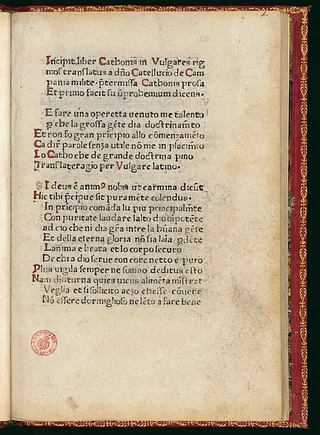 Incipit liber Cathonis in Vulgares rig
mos translatus a dño Catellucio de Cam
pania milite. p̄termissa Cathonis prosa
Et primo facit suũ prohemium dicens.
E fare una operetta uenuto me talento
che la grossa gẽte dia doctrinamẽto
Et non fo gran pricipio allo comẽzamẽto
Ca dir parole senza utile nõ me in placimẽto
Lo Catho che de grande doctrina pino
Translateragio per Vulgare latino.
I deus ẽ anim9 nobis ut carmina dicũt
Hic tibi p̄cipue sit pura mẽte colendus.
In pricipio comãda lu piu principalmẽte
Con puritate laudare lalto dio õipotẽte
ad cio che ni dia gñs intra la buana gẽte
Et della eterna gloria nõ sia
Lanima e brata et lo corpo securo
De chi a dio serue con core netto e puro
Plus uigila semper ne somno deditus esto
Nam diuturna quies uiciis alimẽta mistrat
Veglia et si sollicito
Nõ essere dormiglioso ne lẽto a fare bene